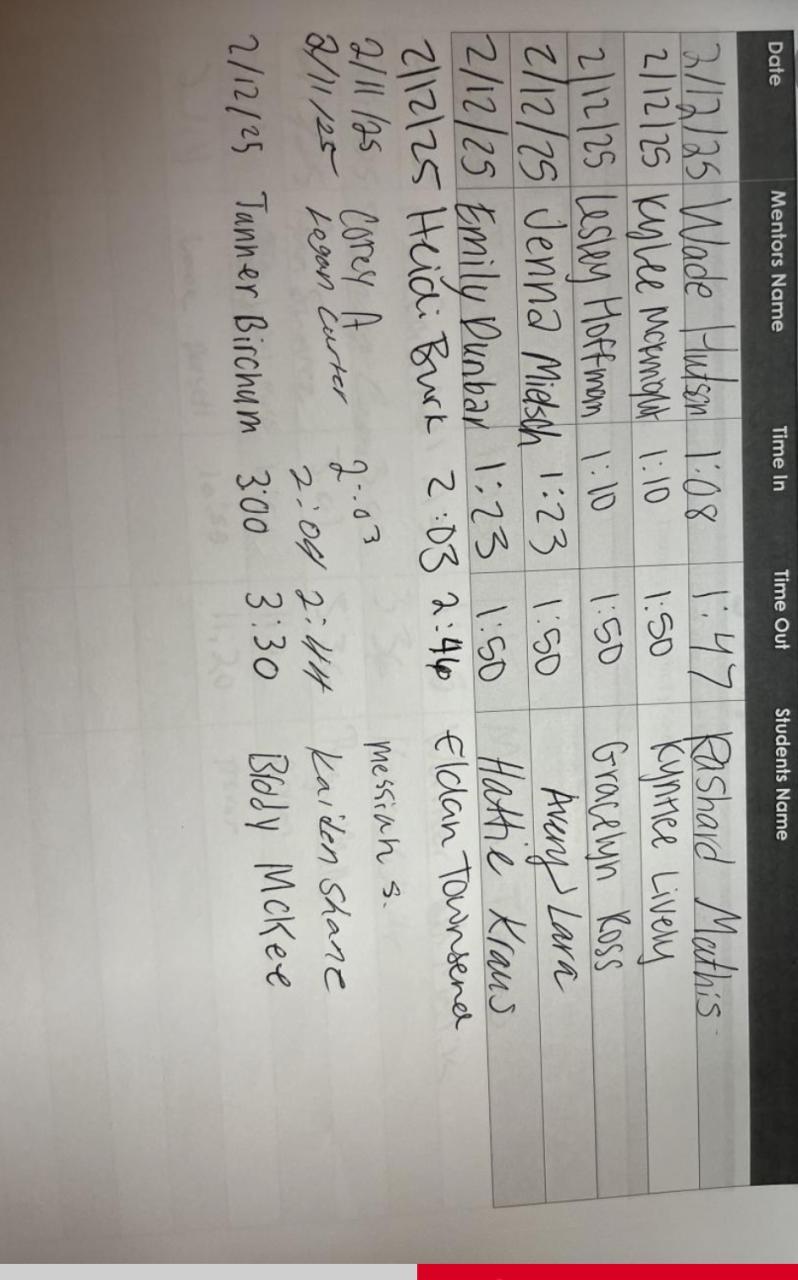 Date Mentors Name Time In Time Out Students Name
2/12/25 Wade Hutson 1:08 1:47 Rashard Mathis
2/12/25 Kylee McKnight 1:10 1:50 Kynlee Lively
2/12/25 Lesley Hoffman 1:10 1:50 Gracelyn Ross
2/12/25 Jenna Mietsch 1:23 1:50 Avery Lara
2/12/25 Emily Dunbar 1:23 1:50 Hattie Kraus
2/12/25 Heidi Burk 2:03 2:46 Eldan Townsend
2/11/25 Corey A 2:03 Messiah S.
2/11/25 Regan Carter 2:04 2:44 Kaiden Shane
2/12/25 Tanner Bircham 3:00 3:30 Brody McKee